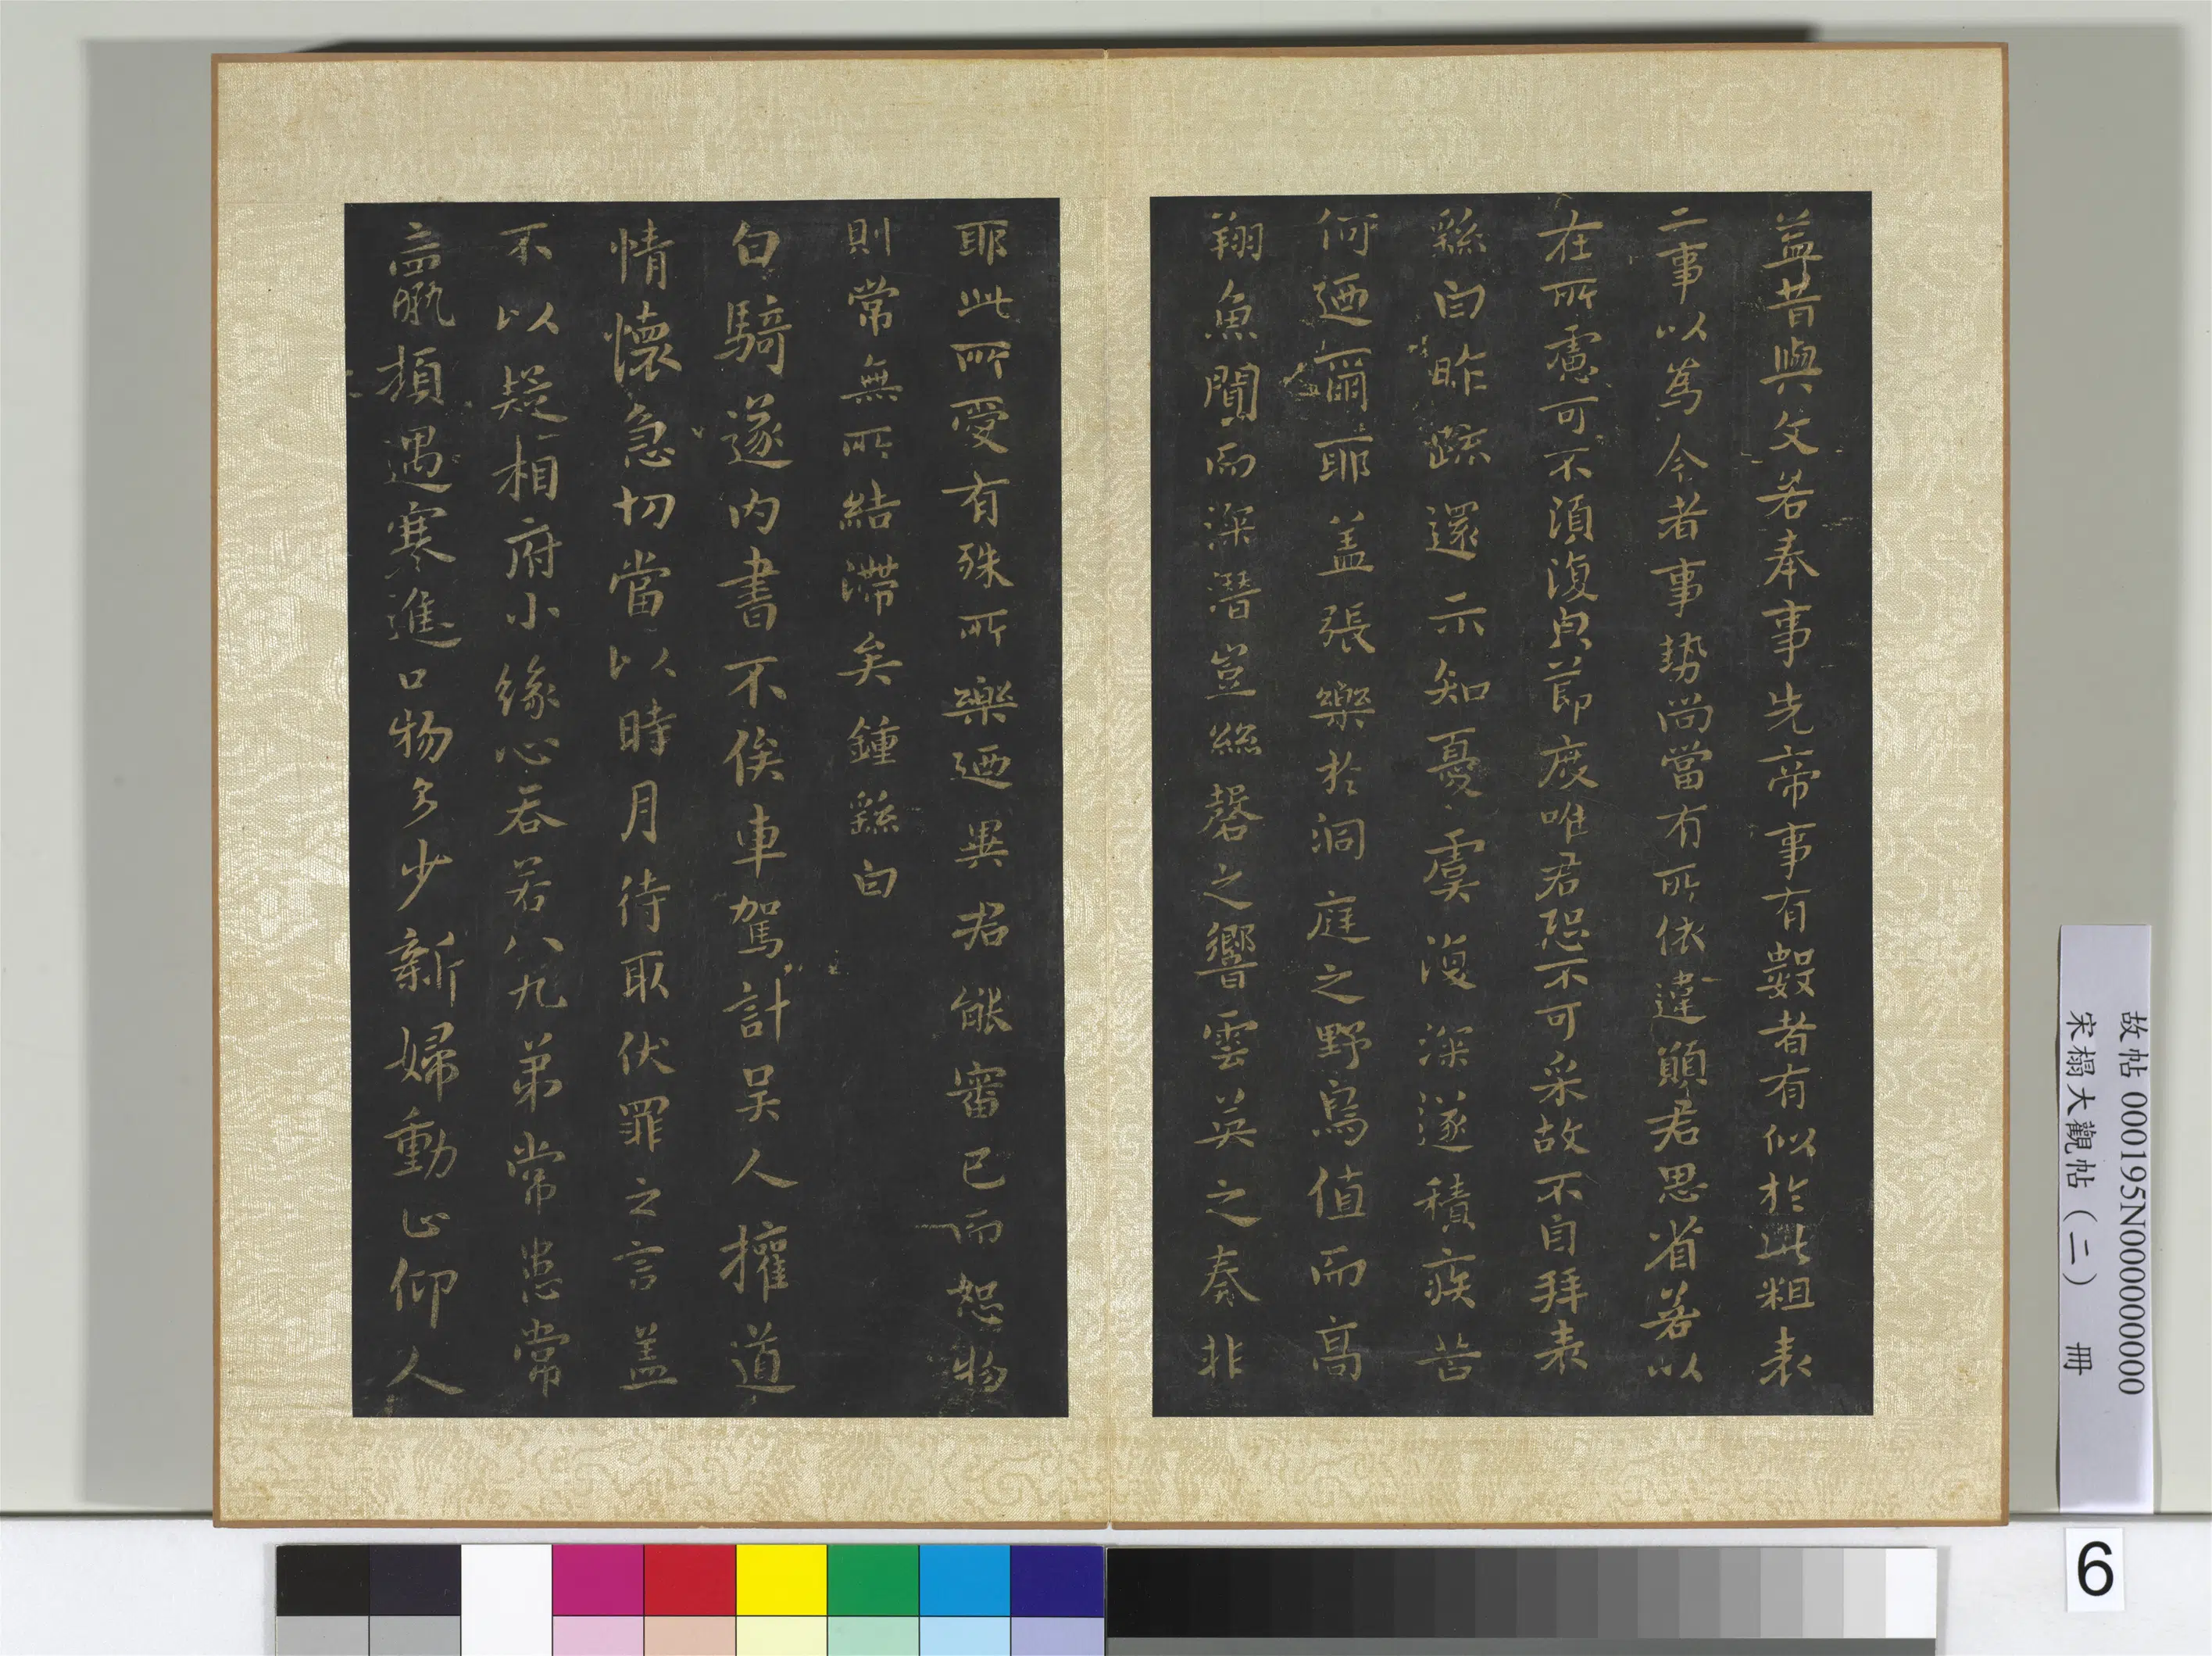 益昔與文若奉事先帝事有數者有似於此粗表
二事以為今者事勢尚當有所依違願君思省若以
在所慮可不須復貞節度唯君恐不可采故不自拜表
繇白昨疏還示知憂虞復深遂積疾苦
何迺爾耶蓋張樂於洞庭之野鳥值而高
翔魚聞而深潛豈絲磬之響雲英之奏非
耶此所愛有殊所樂迺異君能審己而恕物
則常無所結滯矣鍾繇白
白騎遂內書不俟車駕計吴人擁道
情懷急切當以時月待取伏罪之言蓋
不以疑相府小緣心吞若八九弟常患常
羸頓遇寒進口物多少新婦動止仰人
故帖 000195N000000000
宋榻大觀帖(二) 冊
6